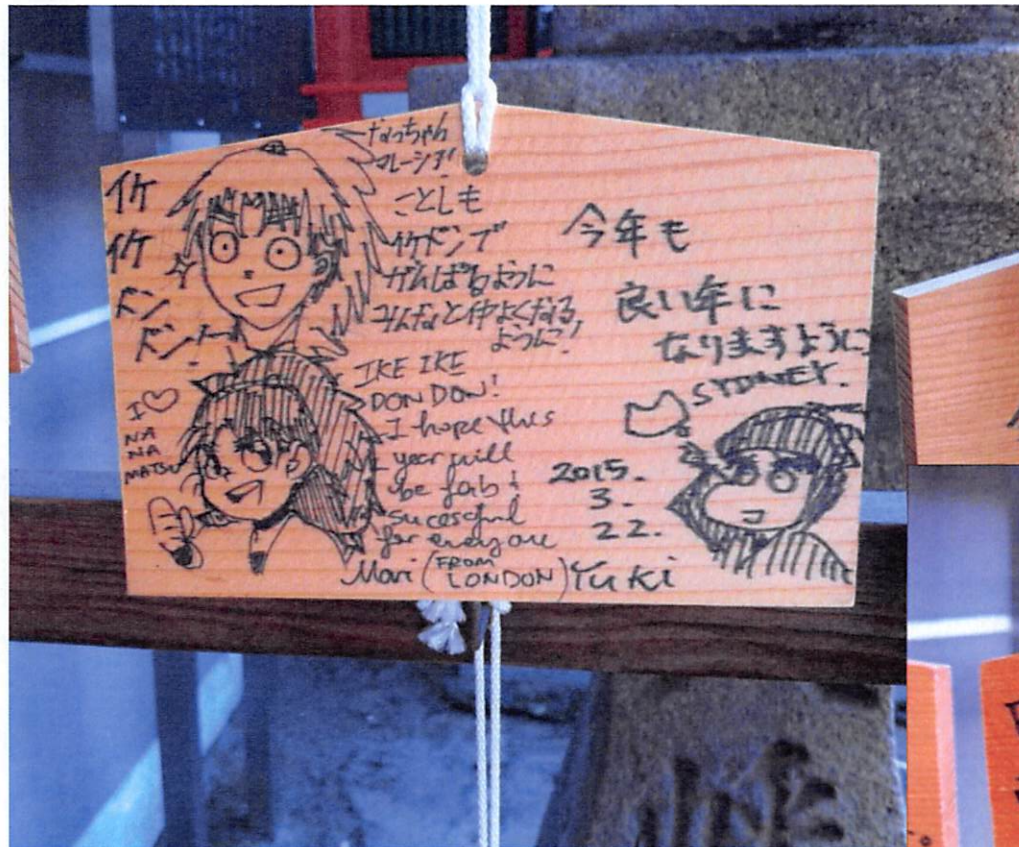 イケ
イケ
ドン
ドンー!
なっちゃん
マレーシア!
ことしも
イケドンで
がんばるように
みんなと仲よくなる
ように!
I ♡
NA
NA
MATSU
IKE IKE
DON DON!
I hope this
year will
be fab &
sucessful
for everyone
Mari (FROM LONDON)
今年も
良い年に
なりますように
SYDNEY.
2015.
3.
22.
Yuki